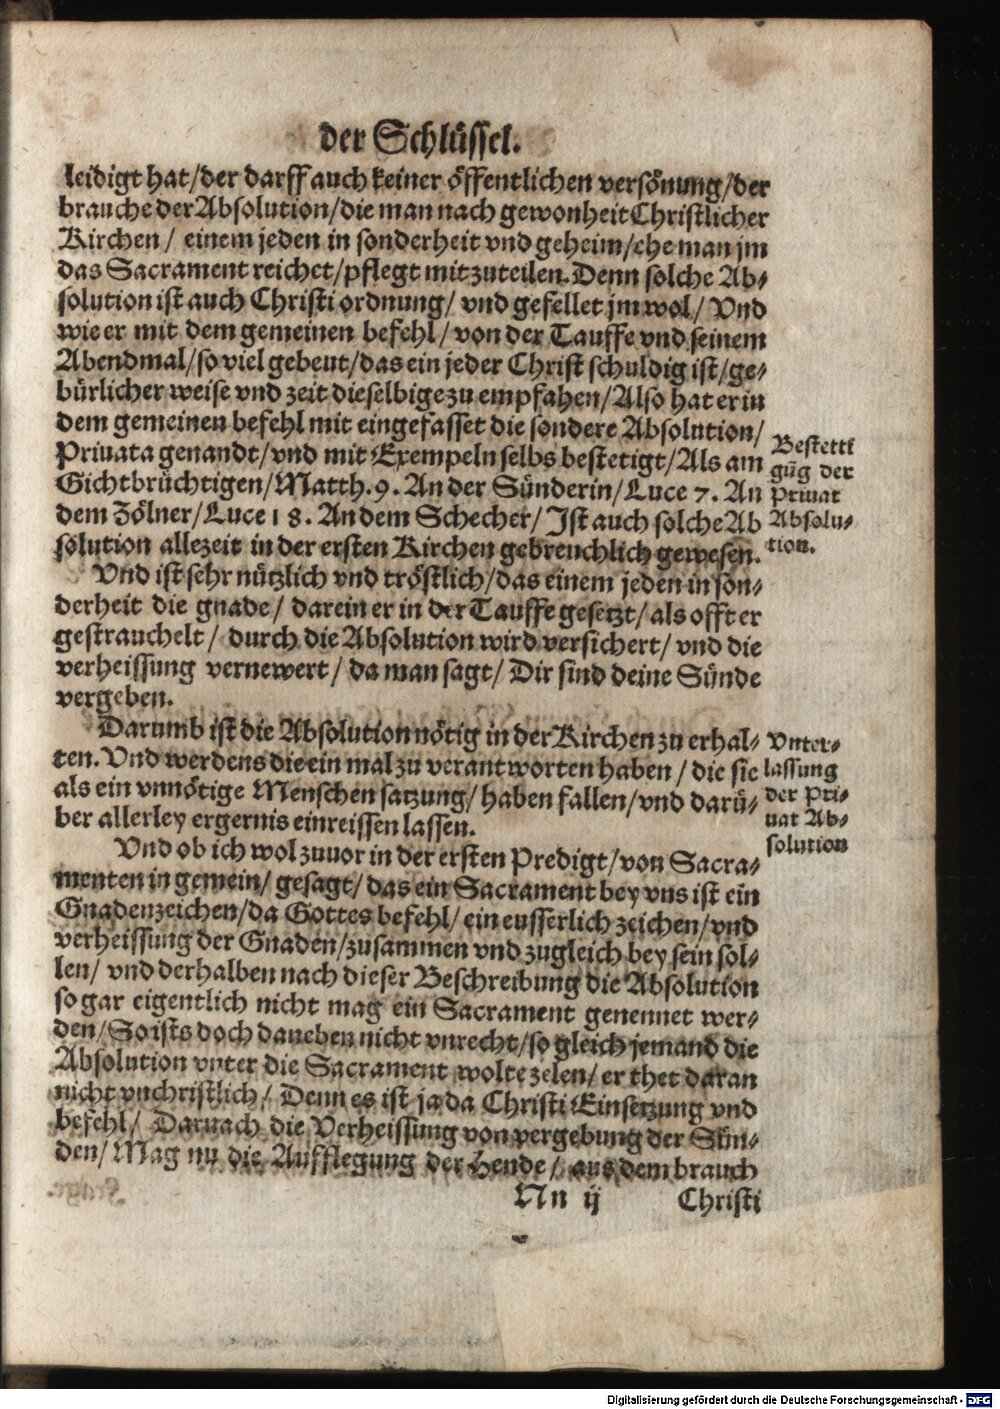 der Schlüssel.
leidigt hat/der darff auch keiner öffentlichen versönung/der
brauche der Absolution/die man nach gewonheit Christlicher
Kirchen/ einem jeden in sonderheit vnd geheim/ehe man jm
das Sacrament reichet/pflegt mitzuteilen. Denn solche Ab-
solution ist auch Christi ordnung/ vnd gefellet jm wol/ Vnd
wie er mit dem gemeinen befehl/ von der Tauffe vnd seinem
Abendmal/so viel gebeut/das ein jeder Christ schuldig ist/ge-
bürlicher weise vnd zeit dieselbige zu empfahen/Also hat er in
dem gemeinen befehl mit eingefasset die sondere Absolution/
Priuata genandt/vnd mit Exempeln selbs bestetigt/Als am
Gichtbrüchtigen/Matth.9. An der Sünderin/Luce 7. An
dem Zölner/Luce 18. An dem Schecher/ Ist auch solche Ab
solution allezeit in der ersten Kirchen gebreuchlich gewesen.
Bestetti
gūg der
Priuat
Absolu-
tion.
Vnd ist sehr nützlich vnd tröstlich/das einem jeden in son-
derheit die gnade/ darein er in der Tauffe gesetzt/als offt er
gestrauchelt/ durch die Absolution wird versichert/ vnd die
verheissung vernewert/ da man sagt/ Dir sind deine Sünde
vergeben.
Darumb ist die Absolution nötig in der Kirchen zu erhal-
ten. Vnd werdens die ein mal zu verantworten haben/ die sie
als ein vnnötige Menschen satzung/ haben fallen/vnd darü-
ber allerley ergernis einreissen lassen.
Vnter-
lassung
der Pri-
uat Ab-
solution
Vnd ob ich wol zuuor in der ersten Predigt/von Sacra-
menten in gemein/ gesagt/ das ein Sacrament bey vns ist ein
Gnadenzeichen/da Gottes befehl/ ein eusserlich zeichen/vnd
verheissung der Gnaden/zusammen vnd zugleich bey sein sol-
len/ vnd derhalben nach dieser Beschreibung die Absolution
so gar eigentlich nicht mag ein Sacrament genennet wer-
den/So ists doch daneben nicht vnrecht/so gleich jemand die
Absolution vnter die Sacrament wolte zelen/ er thet daran
nicht vnchristlich/ Denn es ist ja da Christi Einsetzung vnd
befehl/ Darnach die Verheissung von vergebung der Sün-
den/ Mag nu die Aufflegung der Hende/ aus dem brauch
Nn ij Christi
Digitalisierung gefördert durch die Deutsche Forschungsgemeinschaft - DFG